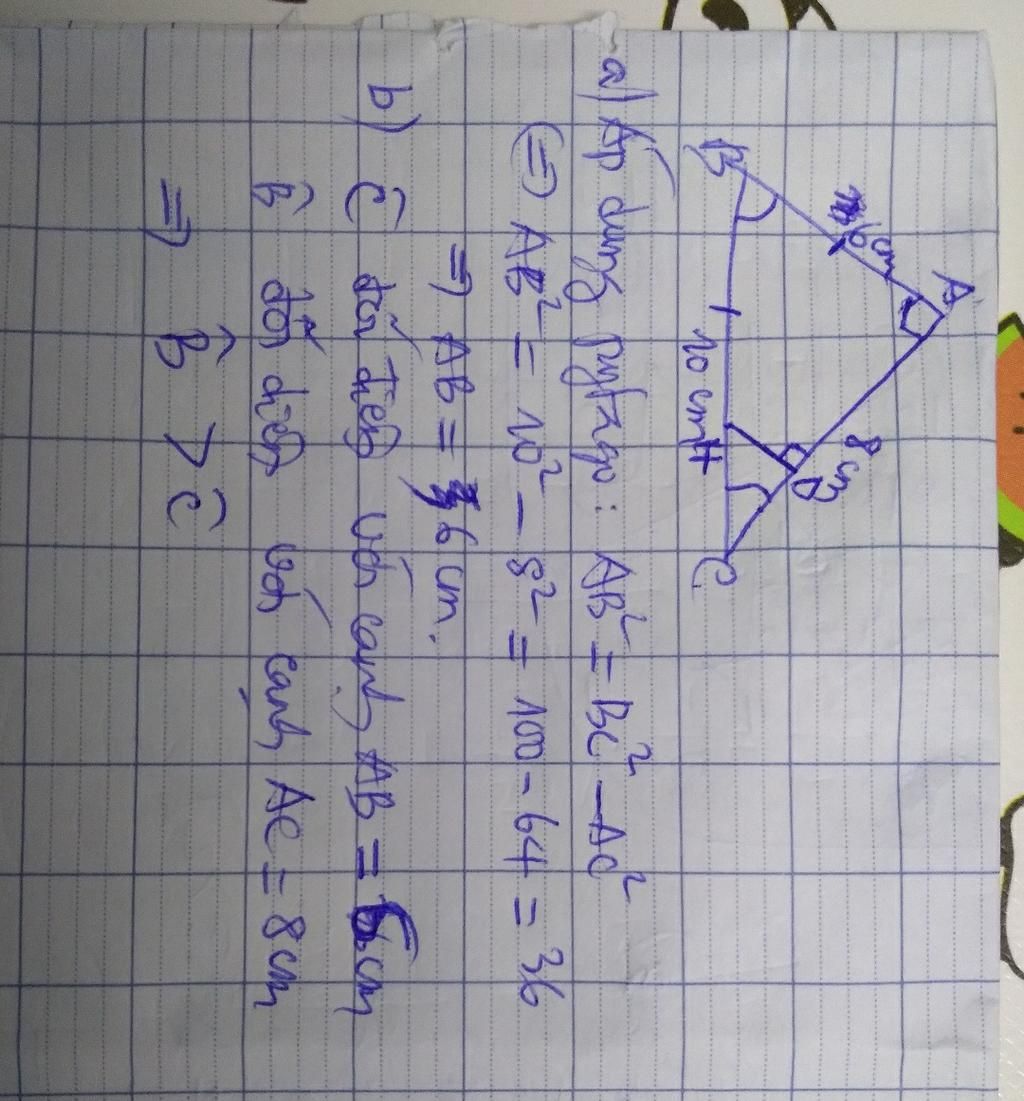 A
6cm
8cm
D
B
10cm
H
C
a) Áp dụng pytago: AB² = BC² - AC²
(=) AB² = 10² - 8² = 100 - 64 = 36
=> AB = 6cm.
b) Ĉ đối diện với cạnh AB = 6cm
B̂ đối diện với cạnh AC = 8cm
=> B̂ > Ĉ